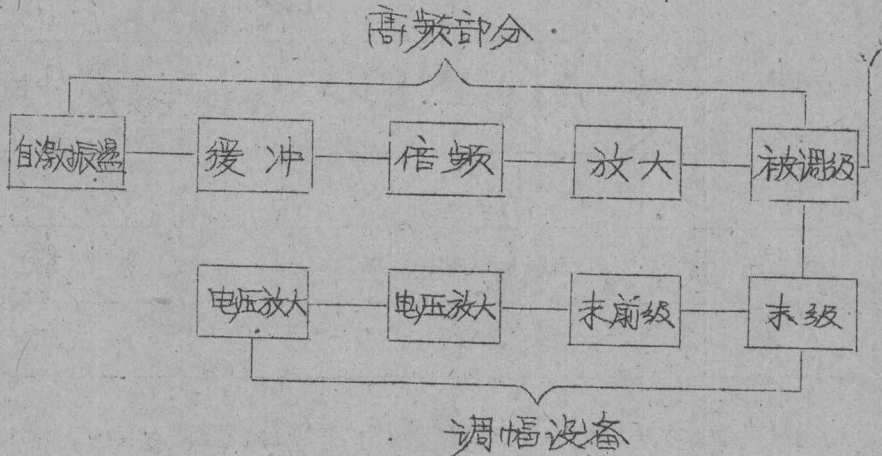 高频部分
自激振盪
缓冲
倍频
放大
被调级
电压放大
电压放大
末前级
末级
调幅设备